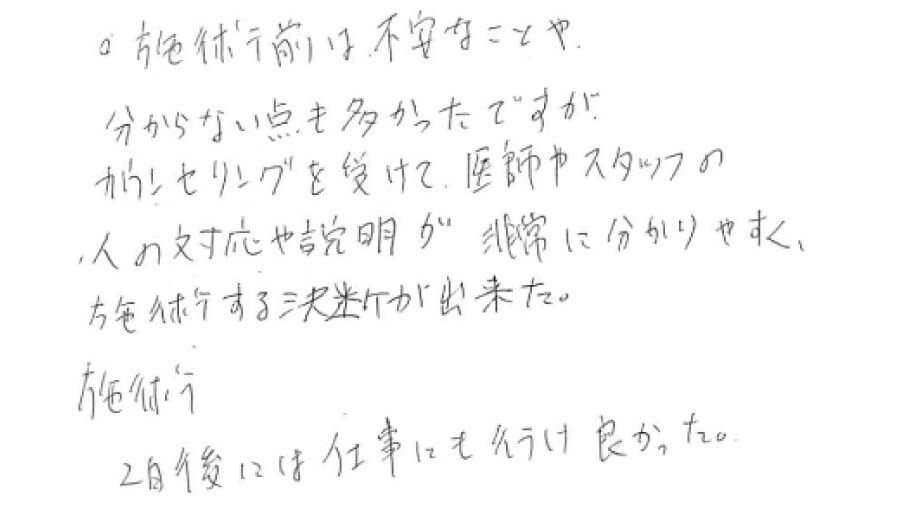 ○ 施術前は不安なことや、
分からない点も多かったですが、
カウンセリングを受けて、医師やスタッフの
人の対応や説明が非常に分かりやすく、
施術する決断が出来た。
施術
2日後には仕事にも行け良かった。